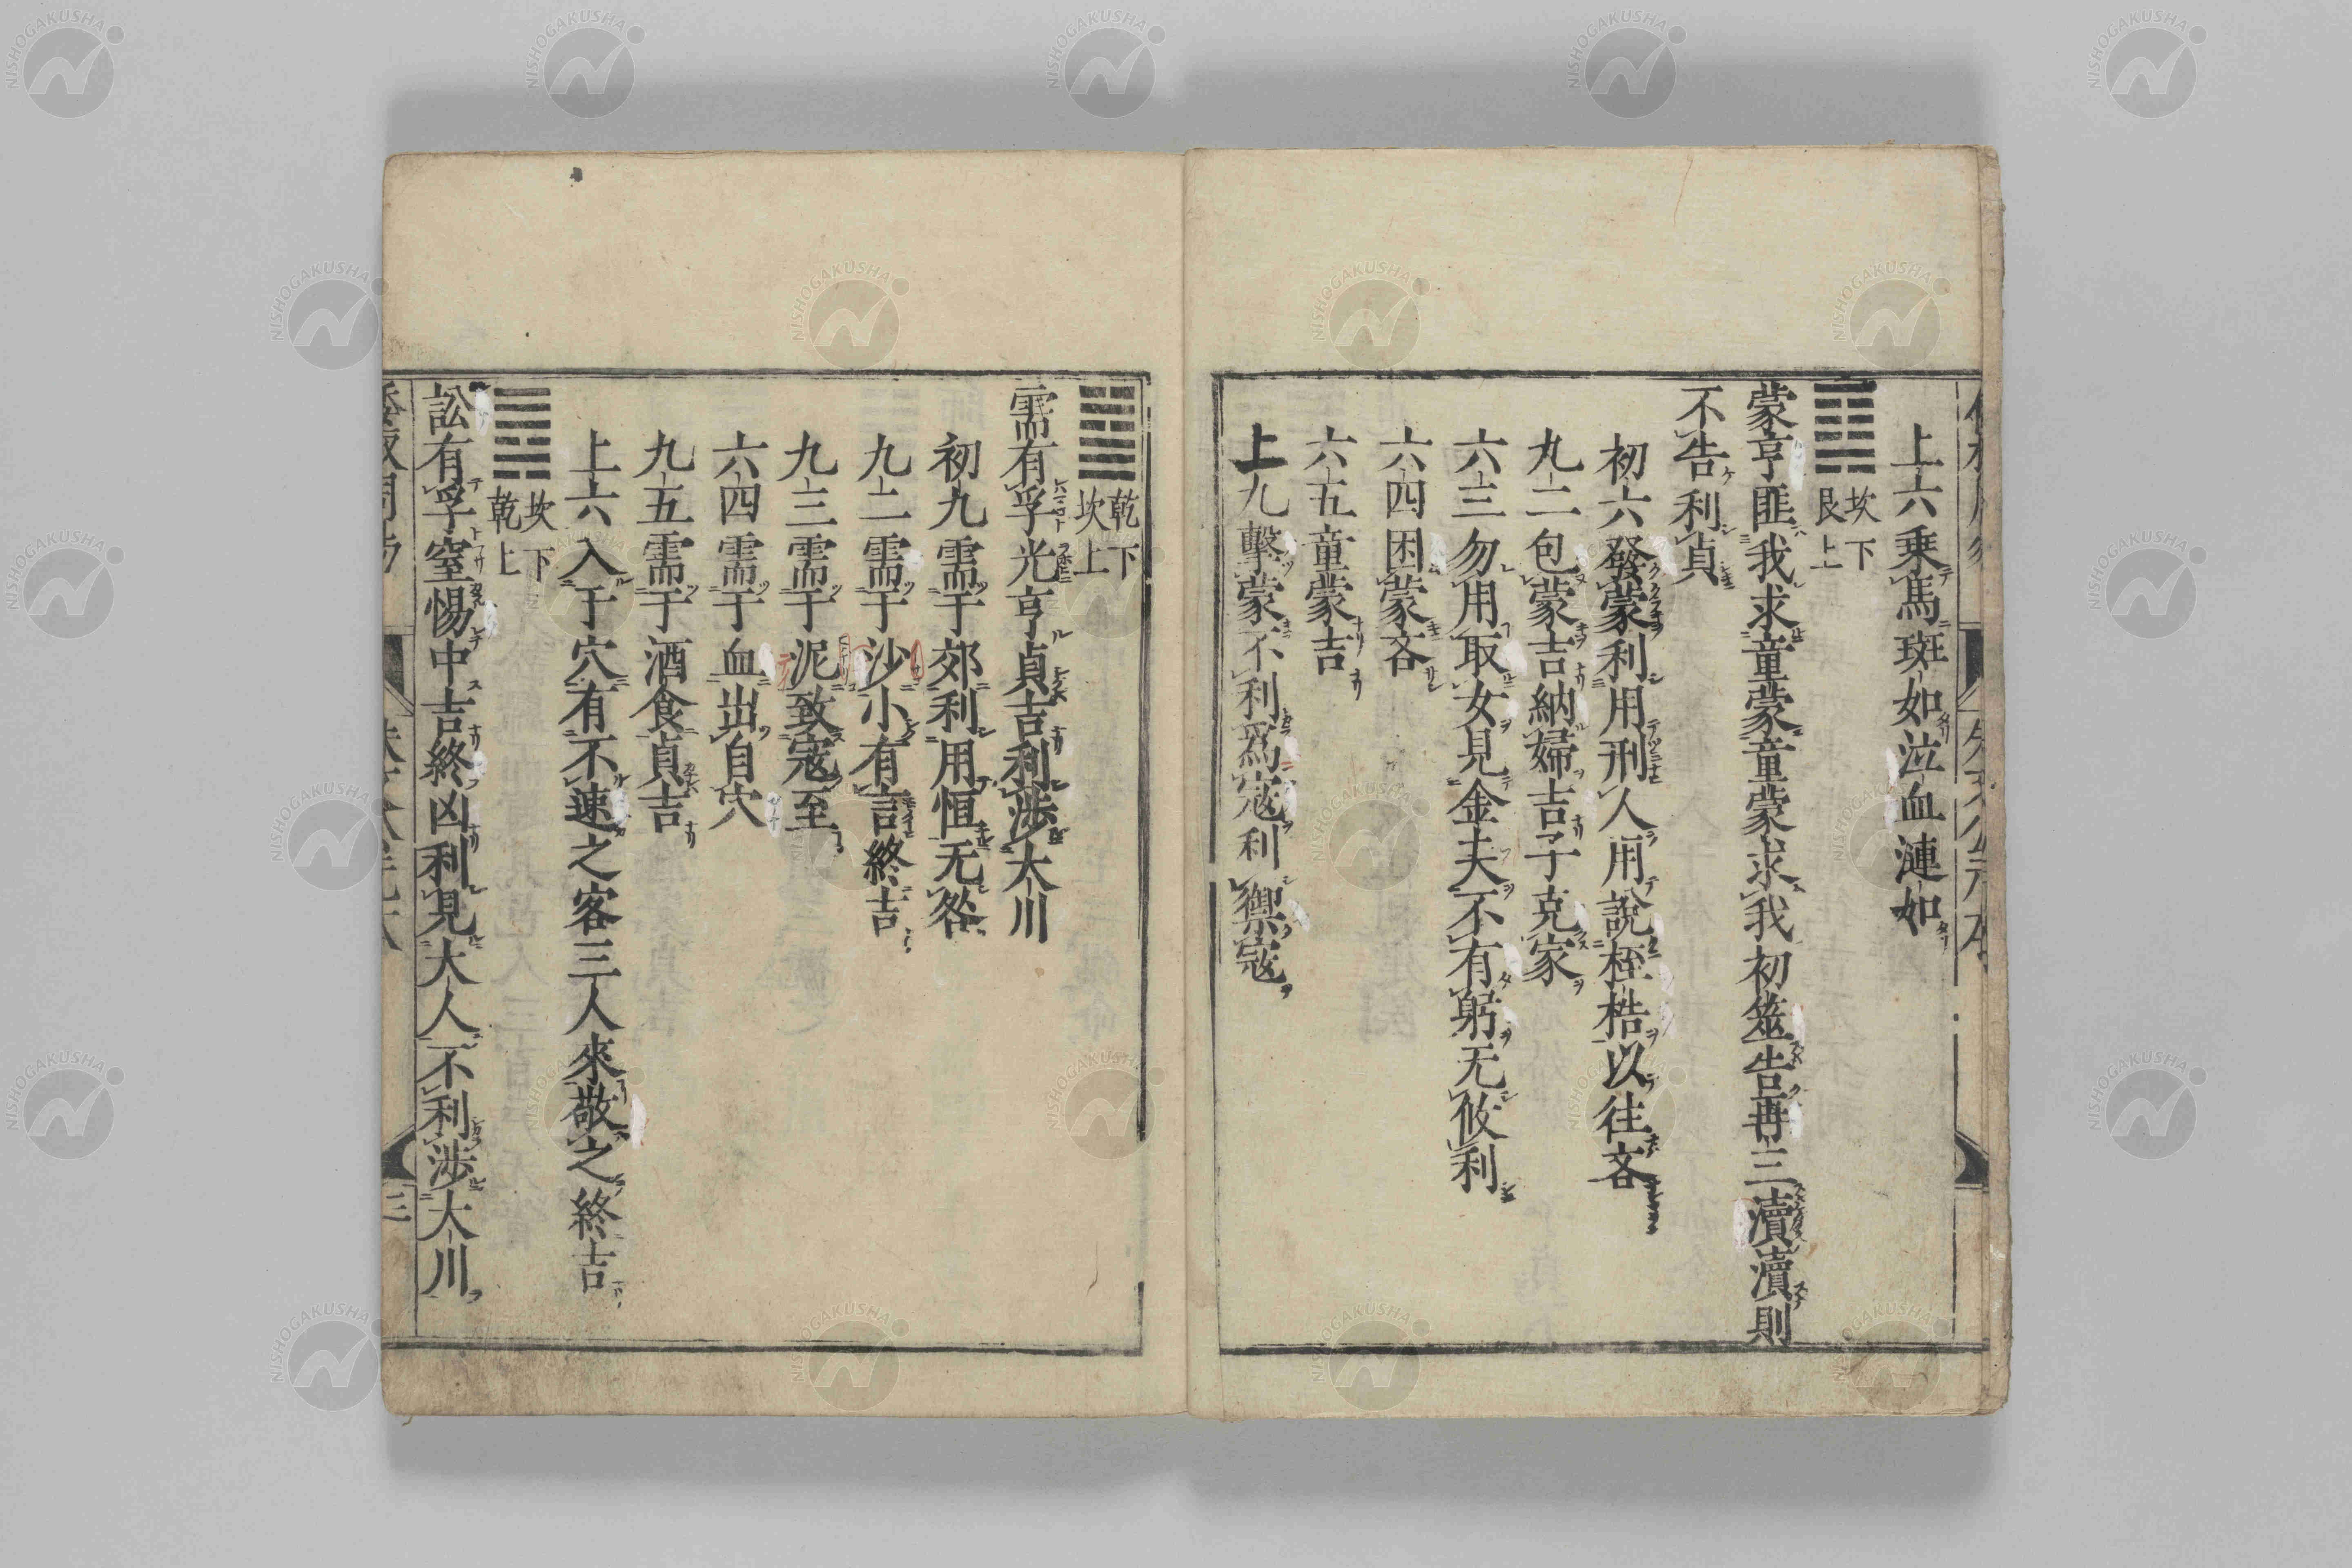 上六乗馬班如泣血漣如
䷃ 坎下
艮上
蒙亨匪我求童蒙童蒙求我初筮告再三瀆瀆則
不告利貞
初六發蒙利用刑人用說桎梏以往吝
九二包蒙吉納婦吉子克家
六三勿用取女見金夫不有躬无攸利
六四困蒙吝
六五童蒙吉
上九擊蒙不利爲寇利禦寇
䷄ 乾下
坎上
需有孚光亨貞吉利涉大川
初九需于郊利用恒无咎
九二需于沙小有言終吉
九三需于泥致寇至
六四需于血出自穴
九五需于酒食貞吉
上六入于穴有不速之客三人來敬之終吉
䷅ 坎下
乾上
訟有孚窒惕中吉終凶利見大人不利涉大川
三
NISHOGAKUSHA